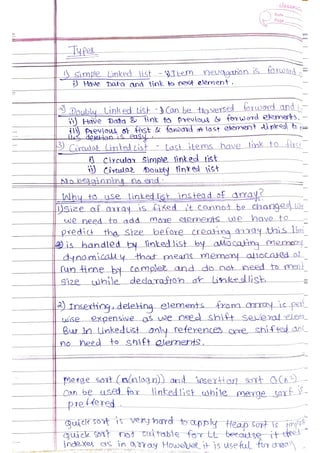 Types
1) Simple Linked list - Item nevagation is forward.
i) Have Data and link to next element.
2) Doubly Linked list - Can be traversed forward and
i) Have Data & link to previous & forword elements.
ii) Previous of first & forward of last element linked to
deletion is easy
3) Circular Linked List - Last items have link to first
i) Circular simple linked list
ii) Circular Doubly linked list
No beginning no end.
Why to use linked list instead of array?
1) Size of array is fixed it cannot be changed
we need to add more elements we have to
predict the size before creating array this
is handled by linked list by allocating memory
dynamically that means memory allocated at
run time by compiler and do not need to
size while declaration of linkedlist.
2) Inserting, deleting elements from array is
wise expensive as we need shift several
But in Linkedlist only references are shifted
no need to shift elements.
Merge sort (n(nlogn)) and insertion sort
can be used for linkedlist while merge sort is
preffered.
quick sort is very hard to apply Heap sort is
quick sort not suitable for LL because it
indexes as in array However it is useful for